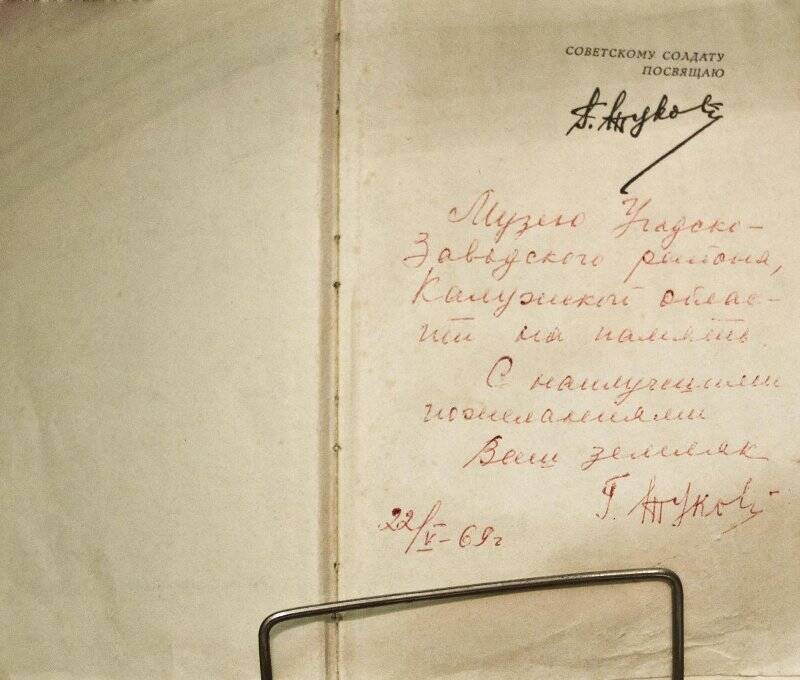 СОВЕТСКОМУ СОЛДАТУ
ПОСВЯЩАЮ
Г. Жуков
Музею Угодско-
Заводского района,
Калужской облас-
ти на память.
С наилучшими
пожеланиями
Ваш земляк
Г. Жуков
22/V-69г